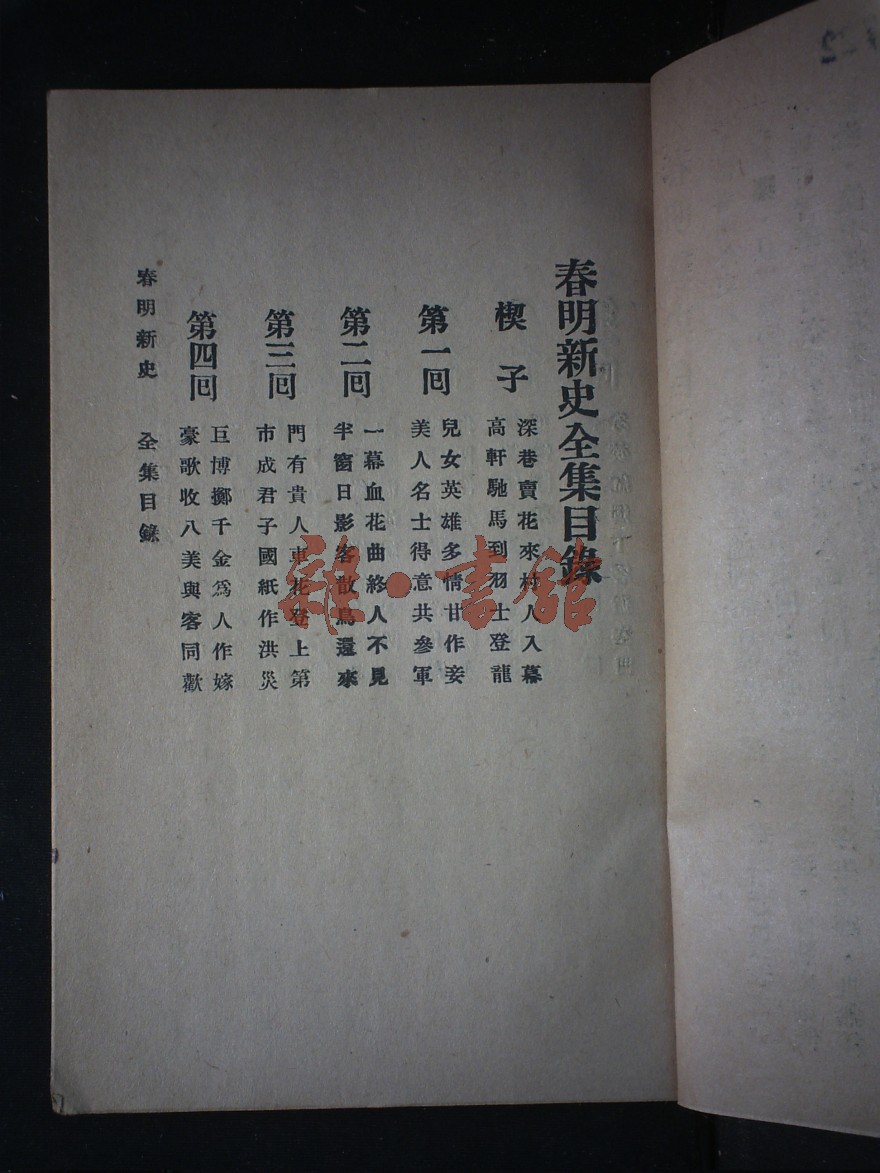 春明新史全集目錄
楔子
深巷賣花來村人入幕
高軒馳馬到羽士登龍
第一囘
兒女英雄多情甘作妾
美人名士得意共參軍
第二囘
一幕血花曲終人不見
半窗日影客散鳥還來
第三囘
門有貴人車花登上第
市成君子國紙作洪災
第四囘
巨博擲千金爲人作嫁
豪歌收八美與客同歡
春明新史 全集目錄
雜·書館
2